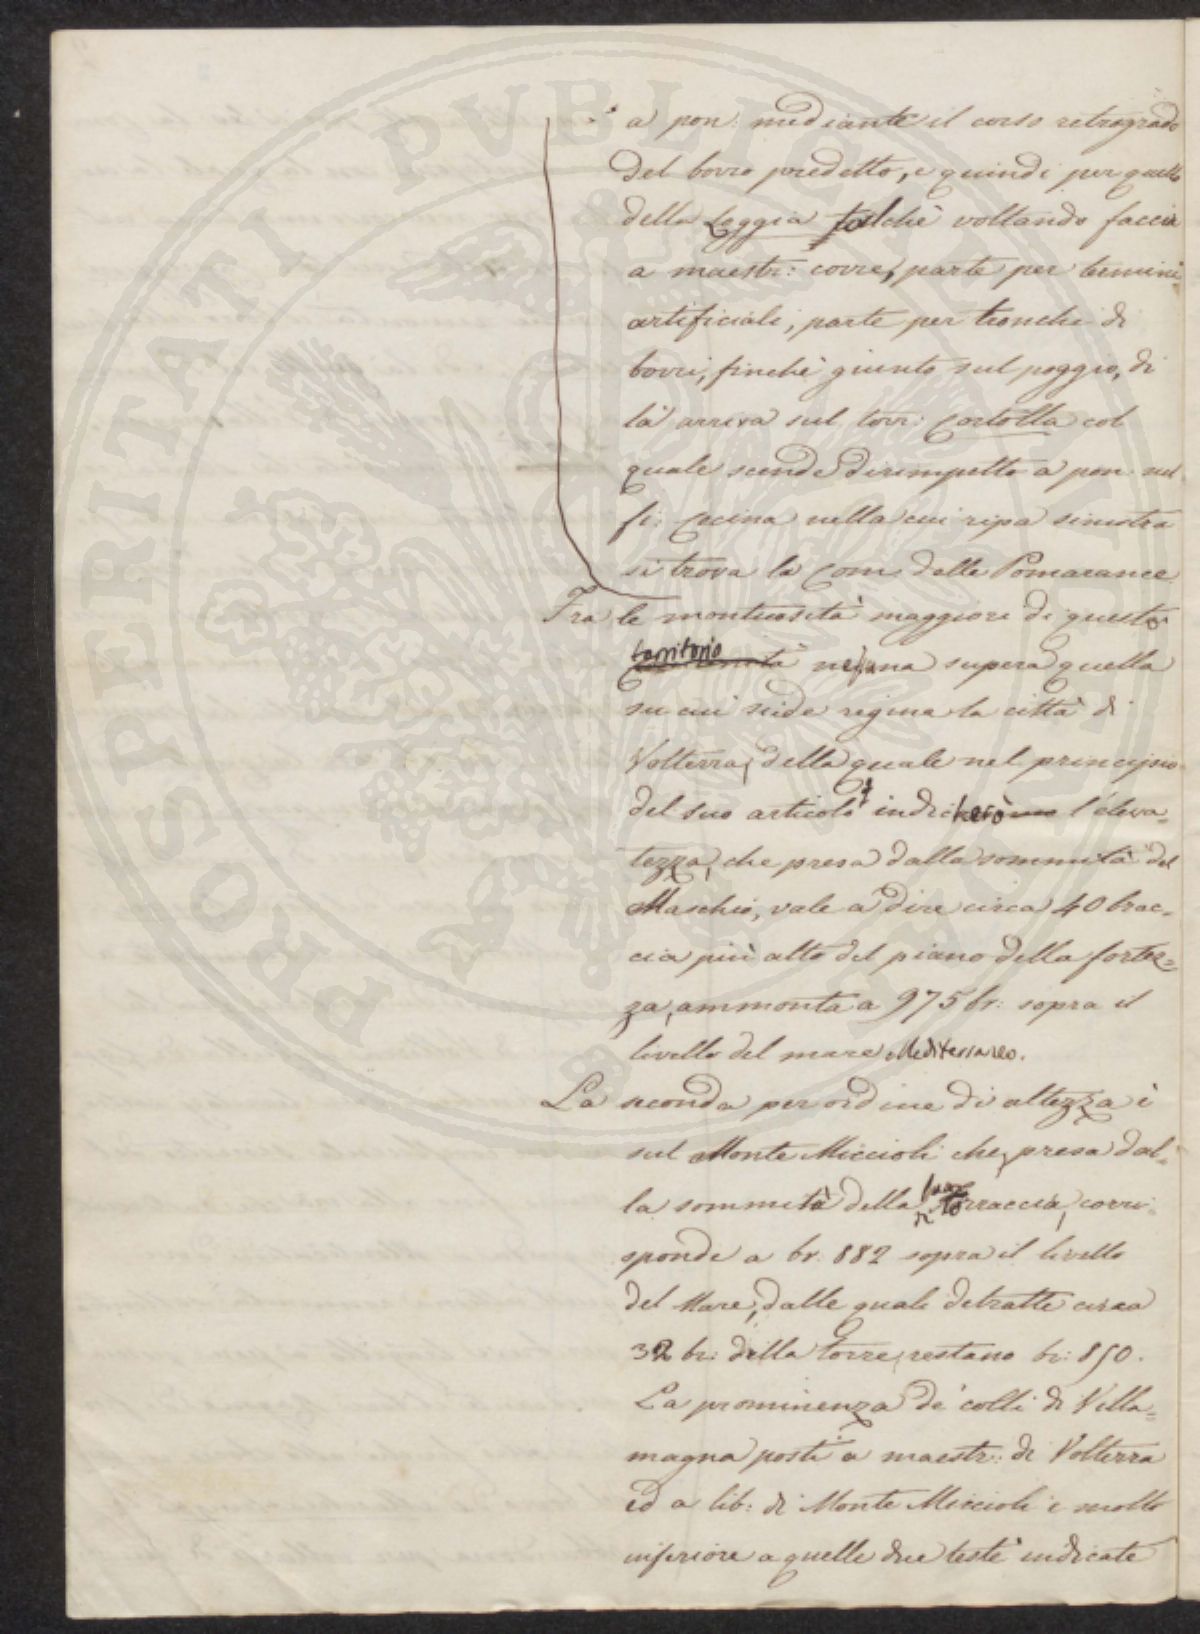 a pon: mediante il corso retrogrado
del borro predetto, e quindi per quello
della Loggia talchè voltando faccia
a maestr: corre, parte per termini
artificiali, parte per tronchi di
borri, finchè giunto sul poggio, di
là arriva sul torr: Cortolla col
quale scende dirimpetto a pon: nel
fi: Cecina nella cui ripa sinistra
si trova la Com: delle Pomarance
Fra le montuosità maggiori di questo
territorio
nessuna supera quella
su cui siede regina la città di
Volterra, della quale nel principio
del suo articolo indicherò l'eleva=
tezza, che presa dalla sommità del
Maschio, vale a dire circa 40 brac=
cia più alto del piano della fortez=
za, ammonta a 975 br: sopra il
livello del mare Mediterraneo.
La seconda per ordine di altezza è
sul Monte Miccioli che, presa dal=
la sommità della sua
torraccia, corri=
sponde a br. 882 sopra il livello
del Mare, dalle quali detratte circa
32 br: della torre, restano br: 850.
La prominenza de' colli di Villa=
magna posti a maestr: di Volterra
ed a lib: di Monte Miccioli è molto
inferiore a quelle due testè indicate
PROSPERITATI PVBLICAE